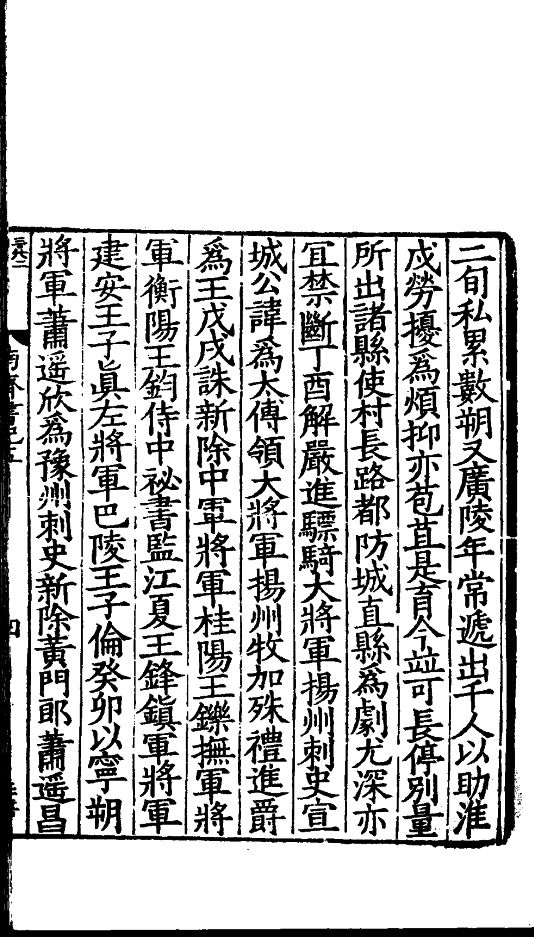 二旬私累數朔又廣陵年常遞出千人以助淮
戍勞擾為煩抑亦苞苴是育今竝可長停別量
所出諸縣使村長路都防城直縣為劇尤深亦
宜禁斷丁酉解嚴進驃騎大將軍揚州刺史宣
城公諱為太傅領大將軍揚州牧加殊禮進爵
為王戊戌誅新除中軍將軍桂陽王鑠撫軍將
軍衡陽王鈞侍中祕書監江夏王鋒鎮軍將軍
建安王子真左將軍巴陵王子倫癸卯以寧朔
將軍蕭遥欣為豫州刺史新除黃門郎蕭遥昌
南齊書紀五
四